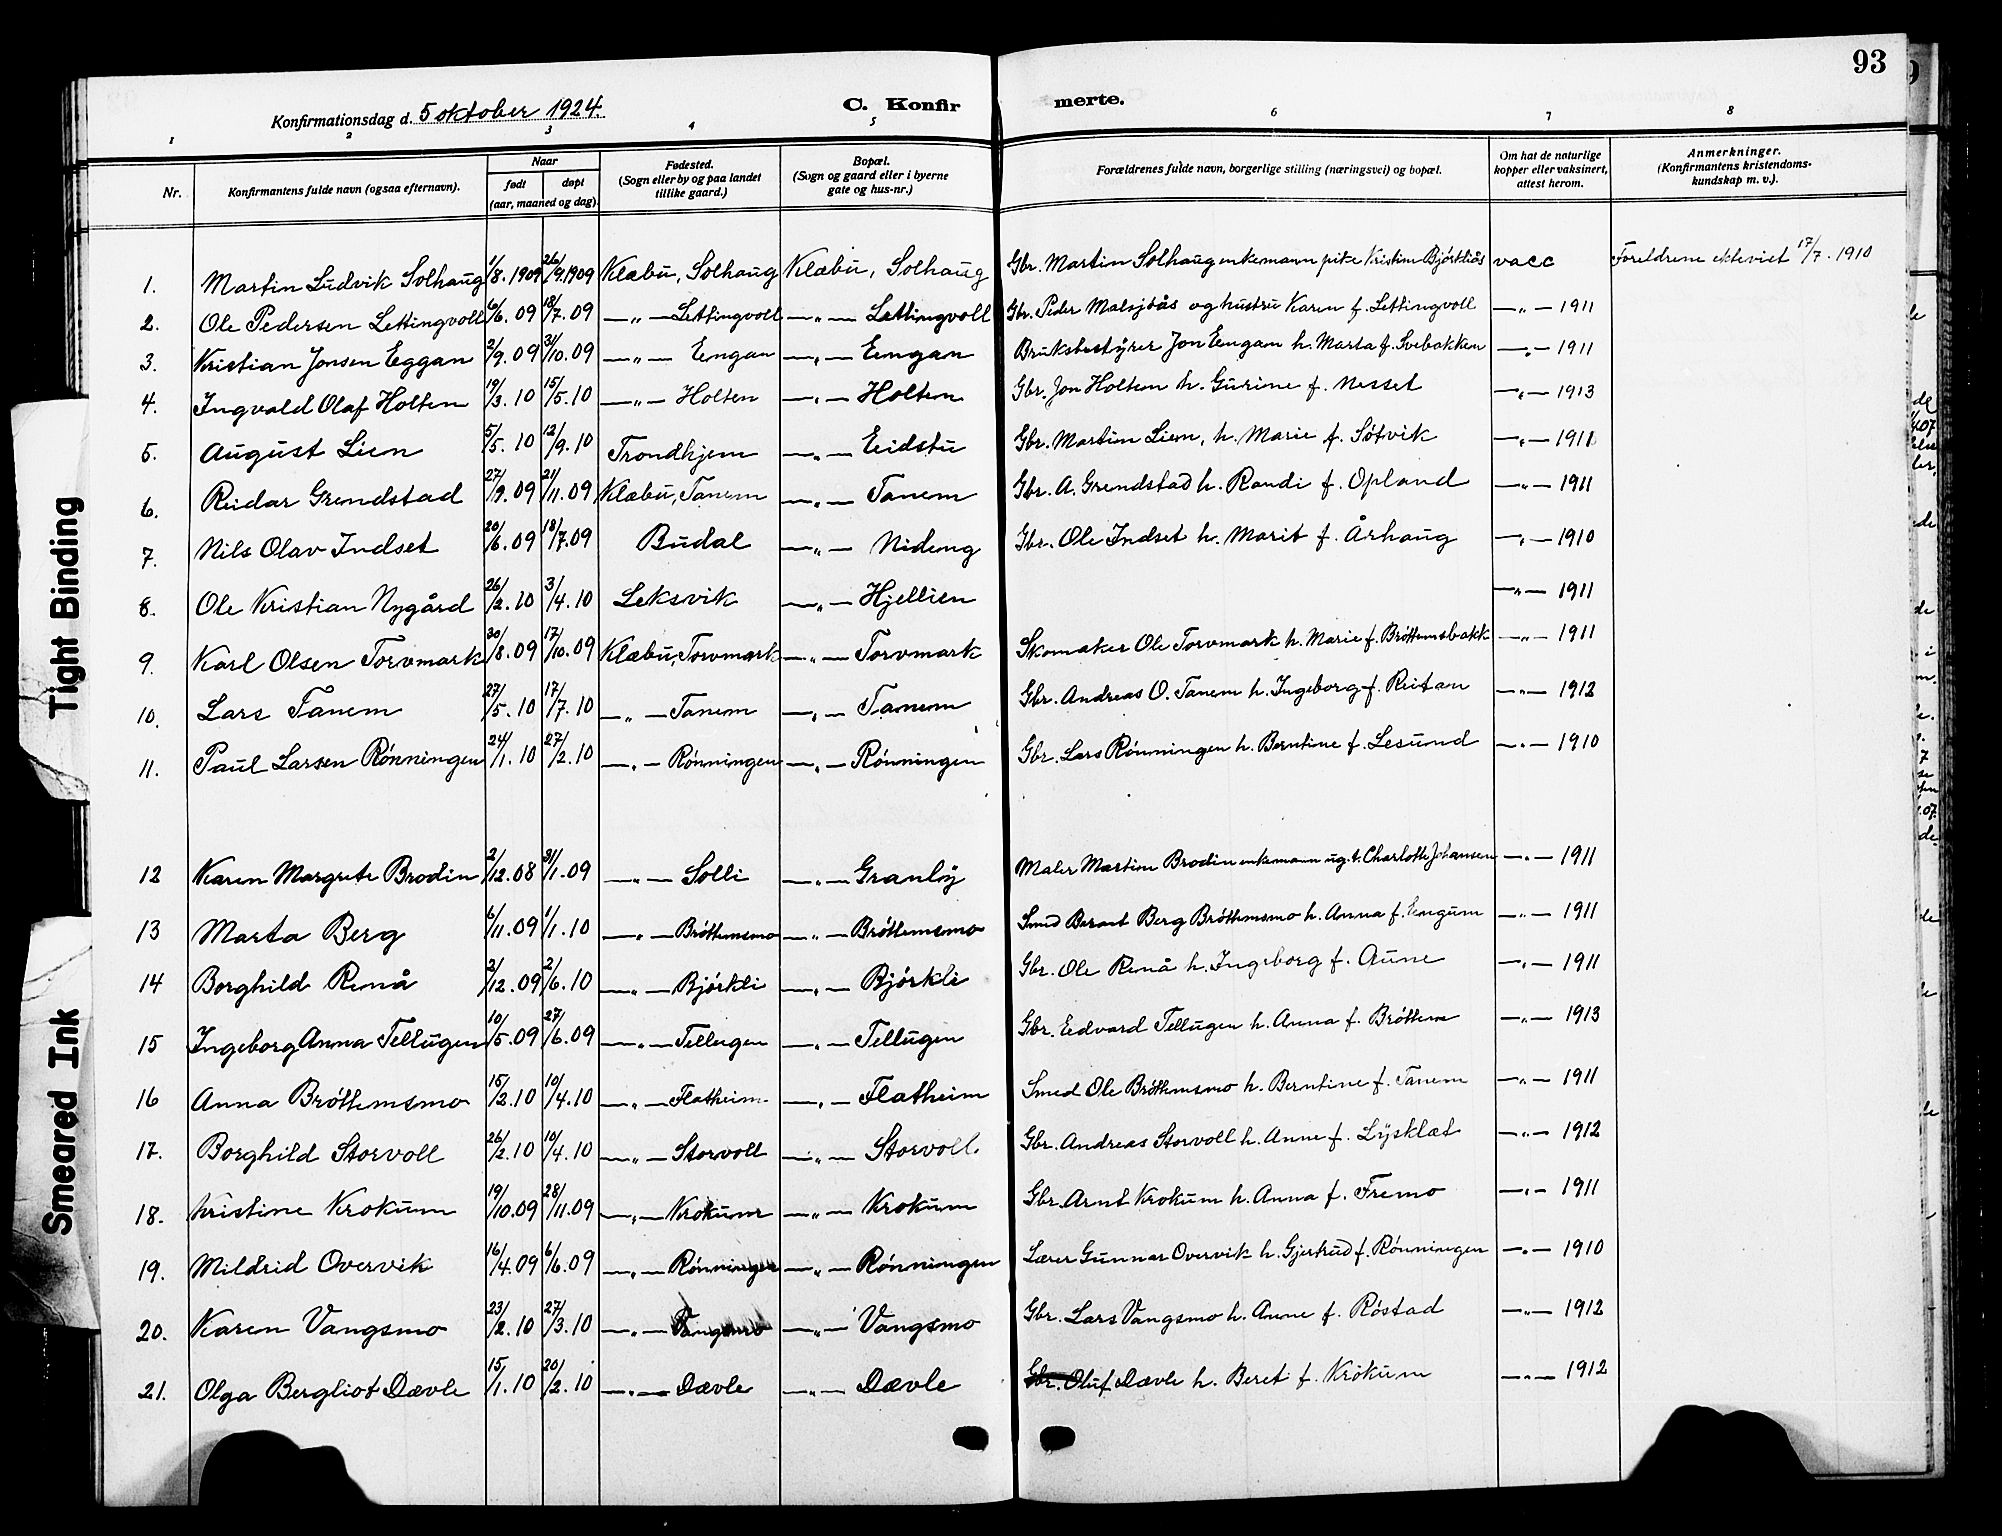 93
Konfirmationsdag d. 5 oktober 1924.
C. Konfirmerte.
1 2 3 4 5 6 7 8
Nr. Konfirmantens fulde navn (ogsaa efternavn). Naar født døpt (aar, maaned og dag). Fødested. (Sogn eller by og paa landet tillike gaard.) Bopæl. (Sogn og gaard eller i byerne gate og hus-nr.) Forældrenes fulde navn, borgerlige stilling (næringsvei) og bopæl. Om hat de naturlige kopper eller vaksinert, attest herom. Anmerkninger. (Konfirmantens kristendomskundskap m. v.).
1. Martin Ludvik Solhaug 1/8. 1909 26/9. 1909 Klæbu, Solhaug Klæbu, Solhaug Gbr. Martin Solhaug enkemann pike Kristine Bjørkliås vacc Foreldrene ekteviet 17/7. 1910
2. Ole Pedersen Lettingvoll 6/6. 09 18/7. 09 —„— Lettingvoll —„— Lettingvoll Gbr. Peder Malsjøås og hustru Karen f. Lettingvoll —„— 1911
3. Kristian Jonsen Eggan 2/9. 09 31/10. 09 —„— Eengan —„— Eengan Bruksbestyrer Jon Eengan h. Marta f. Svebakken —„— 1911
4. Ingvald Olaf Holten 19/3. 10 15/5. 10 —„— Holten —„— Holten Gbr. Jon Holten h. Gurine f. Nesset —„— 1913
5. August Lien 5/5. 10 12/9. 10 Trondhjem —„— Eidstu Gbr. Martin Lien, h. Marie f. Søtvik —„— 1911
6. Reidar Grendstad 27/9. 09 21/11. 09 Klæbu, Tanem —„— Tanem Gbr. A. Grendstad h. Randi f. Opland —„— 1911
7. Nils Olav Indset 20/6. 09 18/7. 09 Budal —„— Nideng Gbr. Ole Indset h. Marit f. Århaug —„— 1910
8. Ole Kristian Nygård 26/2. 10 3/4. 10 Leksvik —„— Hjellien —„— 1911
9. Karl Olsen Torvmark 30/8. 09 17/10. 09 Klæbu, Torvmark —„— Torvmark Skomaker Ole Torvmark h. Marie f. Brøttemsbakk —„— 1911
10. Lars Tanem 27/5. 10 17/7. 10 —„— Tanem —„— Tanem Gbr. Andreas O. Tanem h. Ingeborg f. Reitan —„— 1912
11. Paul Larsen Rønningen 24/1. 10 27/2. 10 —„— Rønningen —„— Rønningen Gbr. Lars Rønningen h. Berntine f. Lesund —„— 1910
12 Karen Margrete Brodin 2/12. 08 31/1. 09 —„— Solli —„— Granløy Maler Martin Brodin enkemann ug. t. Charlotte Johansen —„— 1911
13 Marta Berg 6/11. 09 1/1. 10 —„— Brøttemsmo —„— Brøttemsmo Smed Berat Berg Brøttemsmo h. Anna f. Eengum —„— 1911
14 Borghild Renå 2/12. 09 2/6. 10 —„— Bjørkli —„— Bjørkli Gbr. Ole Renå h. Ingeborg f. Aune —„— 1911
15 Ingeborg Anna Tellugen 10/5. 09 27/6. 09 —„— Tellugen —„— Tellugen Gbr. Edvard Tellugen h. Anna f. Brøttem —„— 1913
16 Anna Brøttemsmo 15/2. 10 10/4. 10 —„— Flatheim —„— Flatheim Smed Ole Brøttemsmo h. Berntine f. Tanem —„— 1911
17. Borghild Storvoll 26/2. 10 10/4. 10 —„— Storvoll —„— Storvoll. Gbr. Andreas Storvoll h. Anne f. Lysklæt —„— 1912
18. Kristine Krokum 19/10. 09 28/11. 09 —„— Krokum —„— Krokum Gbr. Arnt Krokum h. Anna f. Fremo —„— 1911
19. Mildrid Overvik 16/4. 09 6/6. 09 —„— Rønningen —„— Rønningen Lærer Gunnar Overvik h. Gjertrud f. Rønningen —„— 1910
20. Karen Vangsmo 23/2. 10 27/3. 10 —„— Vangsmo —„— Vangsmo Gbr. Lars Vangsmo h. Anne f. Røstad —„— 1912
21. Olga Bergliot Dævle 15/1. 10 20/2. 10 —„— Dævle —„— Dævle Gbr. Oluf Dævle h. Beret f. Krokum —„— 1912
Tight Binding
Smeared Ink